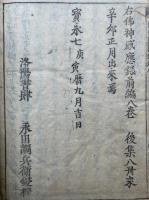 右佛神感應録前編八卷 後集八卷來
辛卯正月出來焉
寳永七庚寅暦九月吉日
洛陽書肆 永田調兵衛